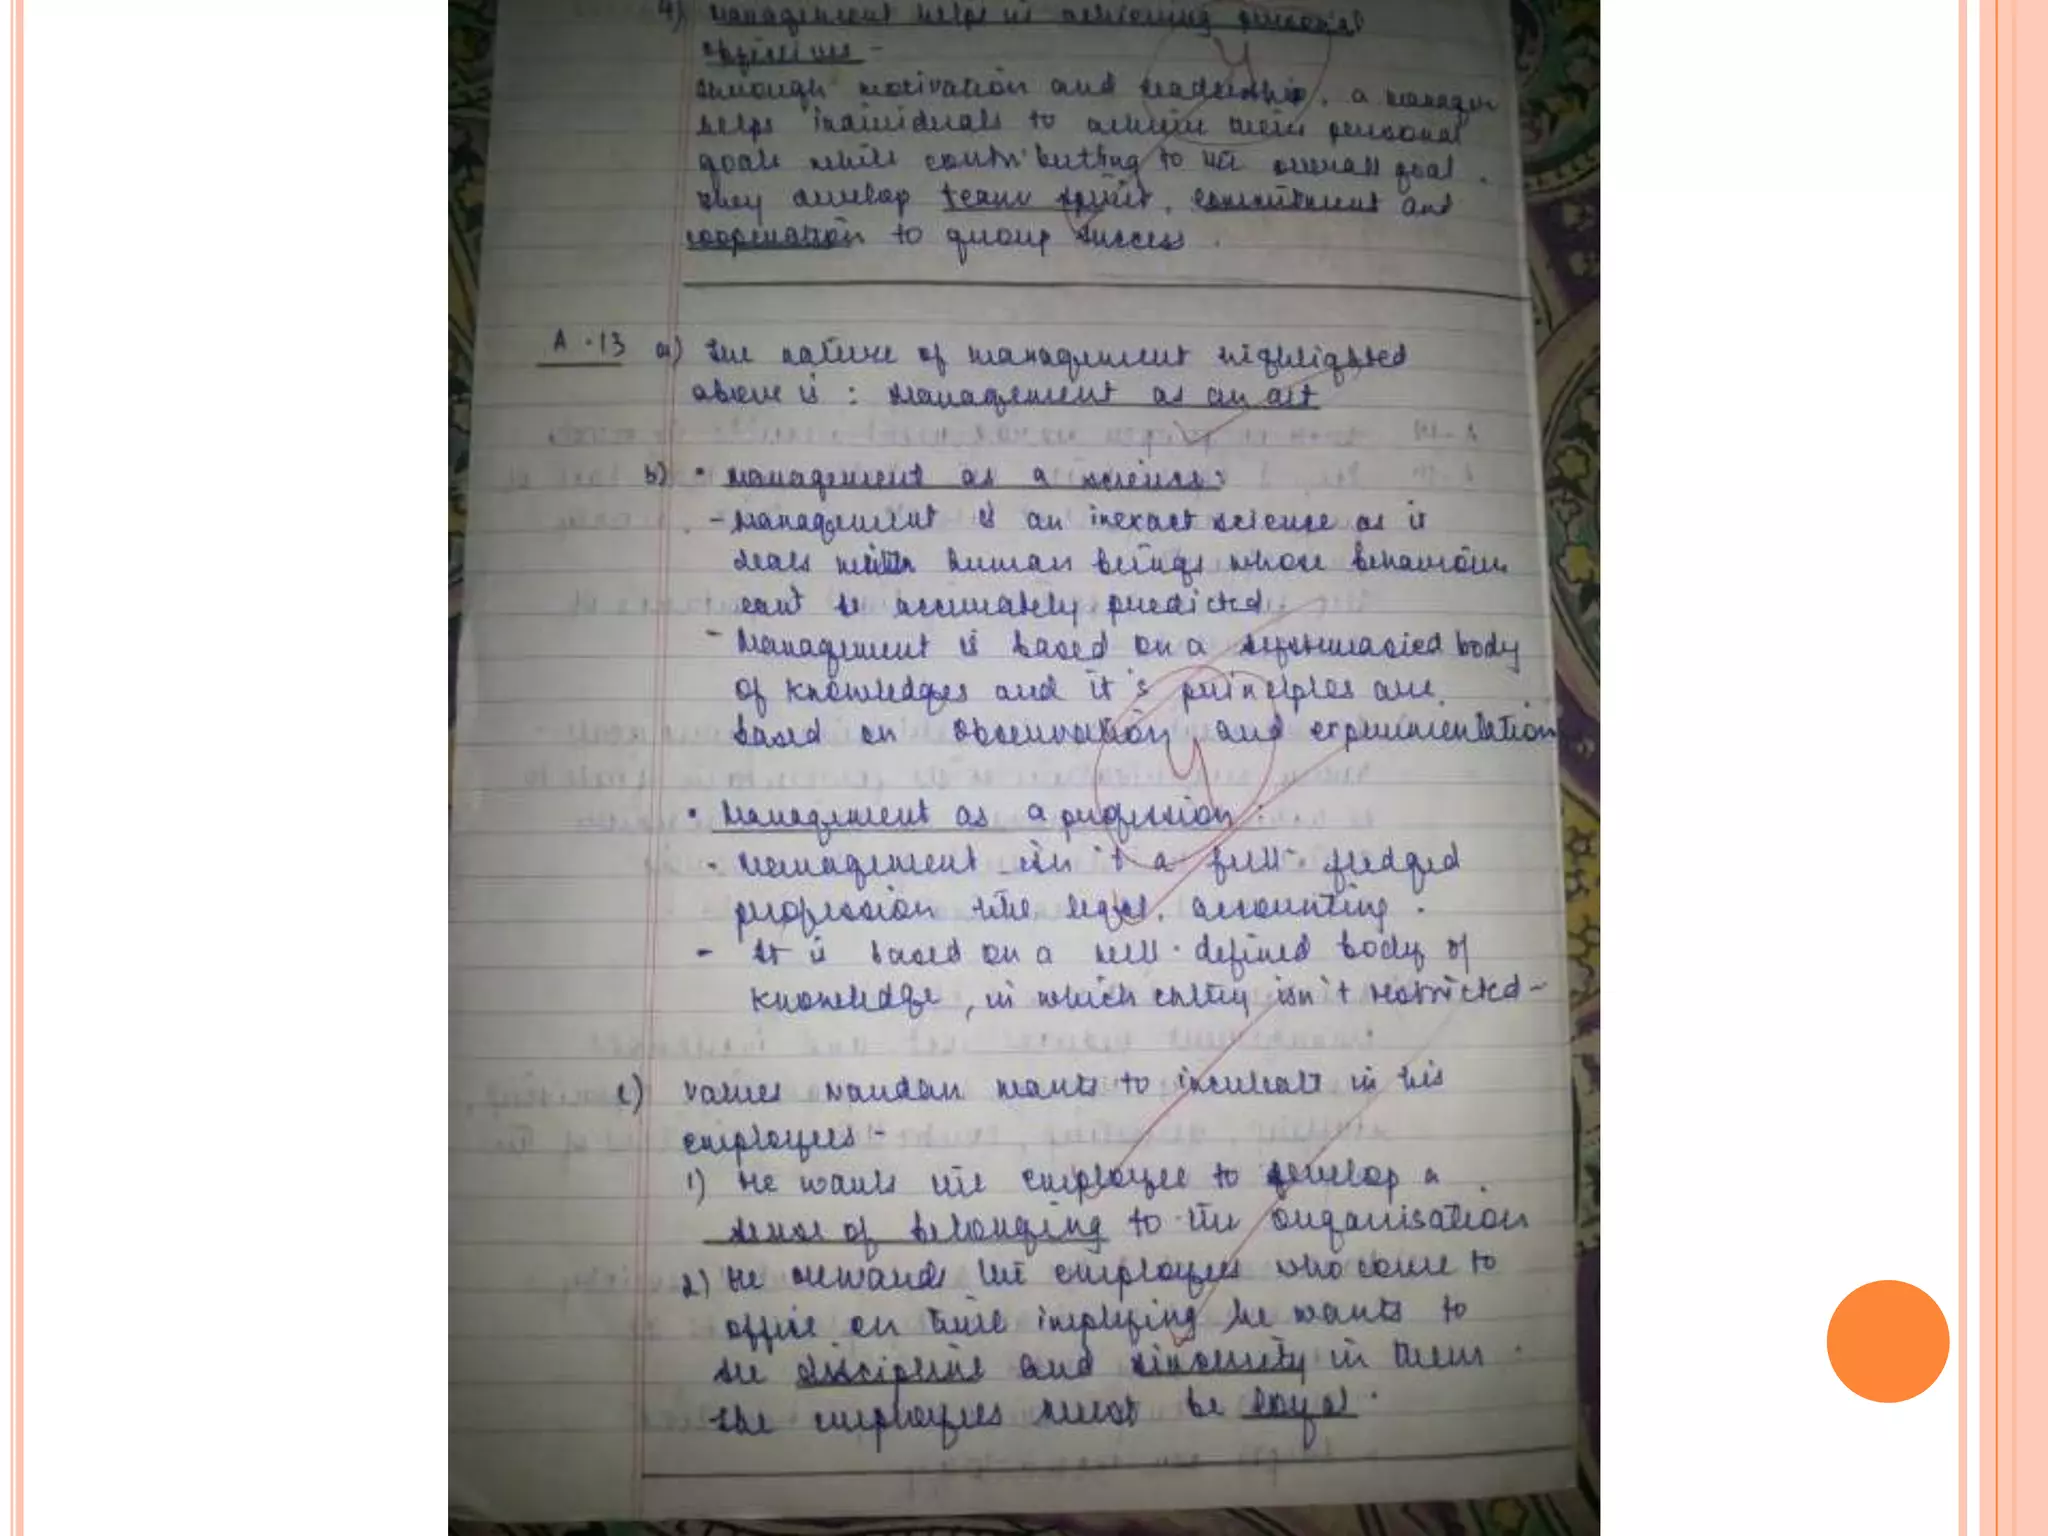 4) Management helps in achieving personal
objectives -
through motivation and leadership, a manager
helps individuals to achieve their personal
goals while contributing to the overall goal.
They develop team spirit, commitment and
cooperation to group success.
A.13 a) The nature of management highlighted
above is : Management as an art
b) • Management as a science:
- Management is an inexact science as it
deals with human beings whose behaviour
cant be accurately predicted
- Management is based on a systemasied body
of knowledges and it's principles are
based on observation and experimentation
• Management as a profession:
- Management isn't a full-fledged
profession like legal, accounting.
- It is based on a well-defined body of
knowledge, in which entry isn't restricted-
c) values Nandan wants to inculcate in his
employees-
1) He wants the employee to develop a
sense of belonging to the organisation
2) He the employees who come to
office on time implying he wants to
see discipline and sincerity in them.
The employees must be loyal.